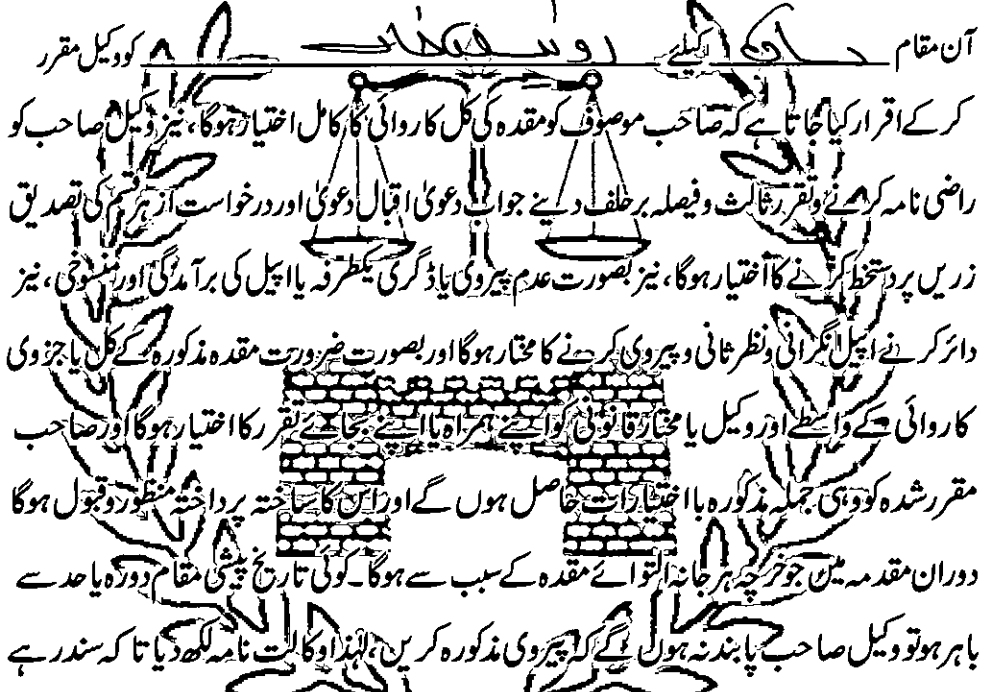 آن مقام کیلئے کو وکیل مقرر
کر کے اقرار کیا جاتا ہے کہ صاحب موصوف کو مقدہ کی کل کاروائی کا کامل اختیار ہوگا، نیز وکیل صاحب کو
راضی نامہ کرنے و تقرر ثالث و فیصلہ بر خلف دینے جواب دعویٰ اقبال دعویٰ اور درخواست از ہر قسم کی تصدیق
زریں پر دستخط کرنے کا اختیار ہوگا، نیز بصورت عدم پیروی یا ڈگری یکطرفہ یا اپیل کی برآمدگی اور منسوخی، نیز
دائر کرنے اپیل نگرانی و نظر ثانی و پیروی کرنے کا مختار ہوگا اور بصورت ضرورت مقدہ مذکورہ کے کل یا جزوی
کاروائی کے واسطے اور وکیل یا مختار قانونی کو اپنے ہمراہ یا اپنے بجائے تقرر کا اختیار ہوگا اور صاحب
مقرر شدہ کو وہی جملہ مذکورہ با اختیارات حاصل ہوں گے اور اس کا ساختہ پرداختہ منظور و قبول ہوگا
دوران مقدمہ میں جو خرچہ ہرجانہ التوائے مقدہ کے سبب سے ہوگا۔ کوئی تاریخ پیشی مقام دورہ یا حد سے
باہر ہو تو وکیل صاحب پابند نہ ہوں گے کہ پیروی مذکورہ کریں، لہٰذا وکالت نامہ لکھ دیا تا کہ سندر ہے